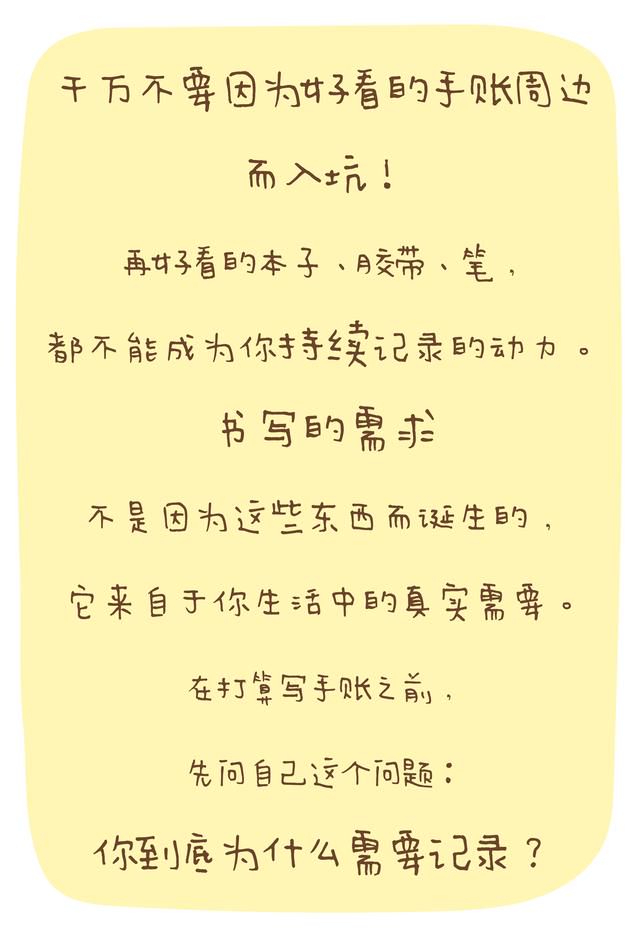 千万不要因为好看的手账周边
而入坑！
再好看的本子、胶带、笔，
都不能成为你持续记录的动力。
书写的需求
不是因为这些东西而诞生的，
它来自于你生活中的真实需要。
在打算写手账之前，
先问自己这个问题：
你到底为什么需要记录？